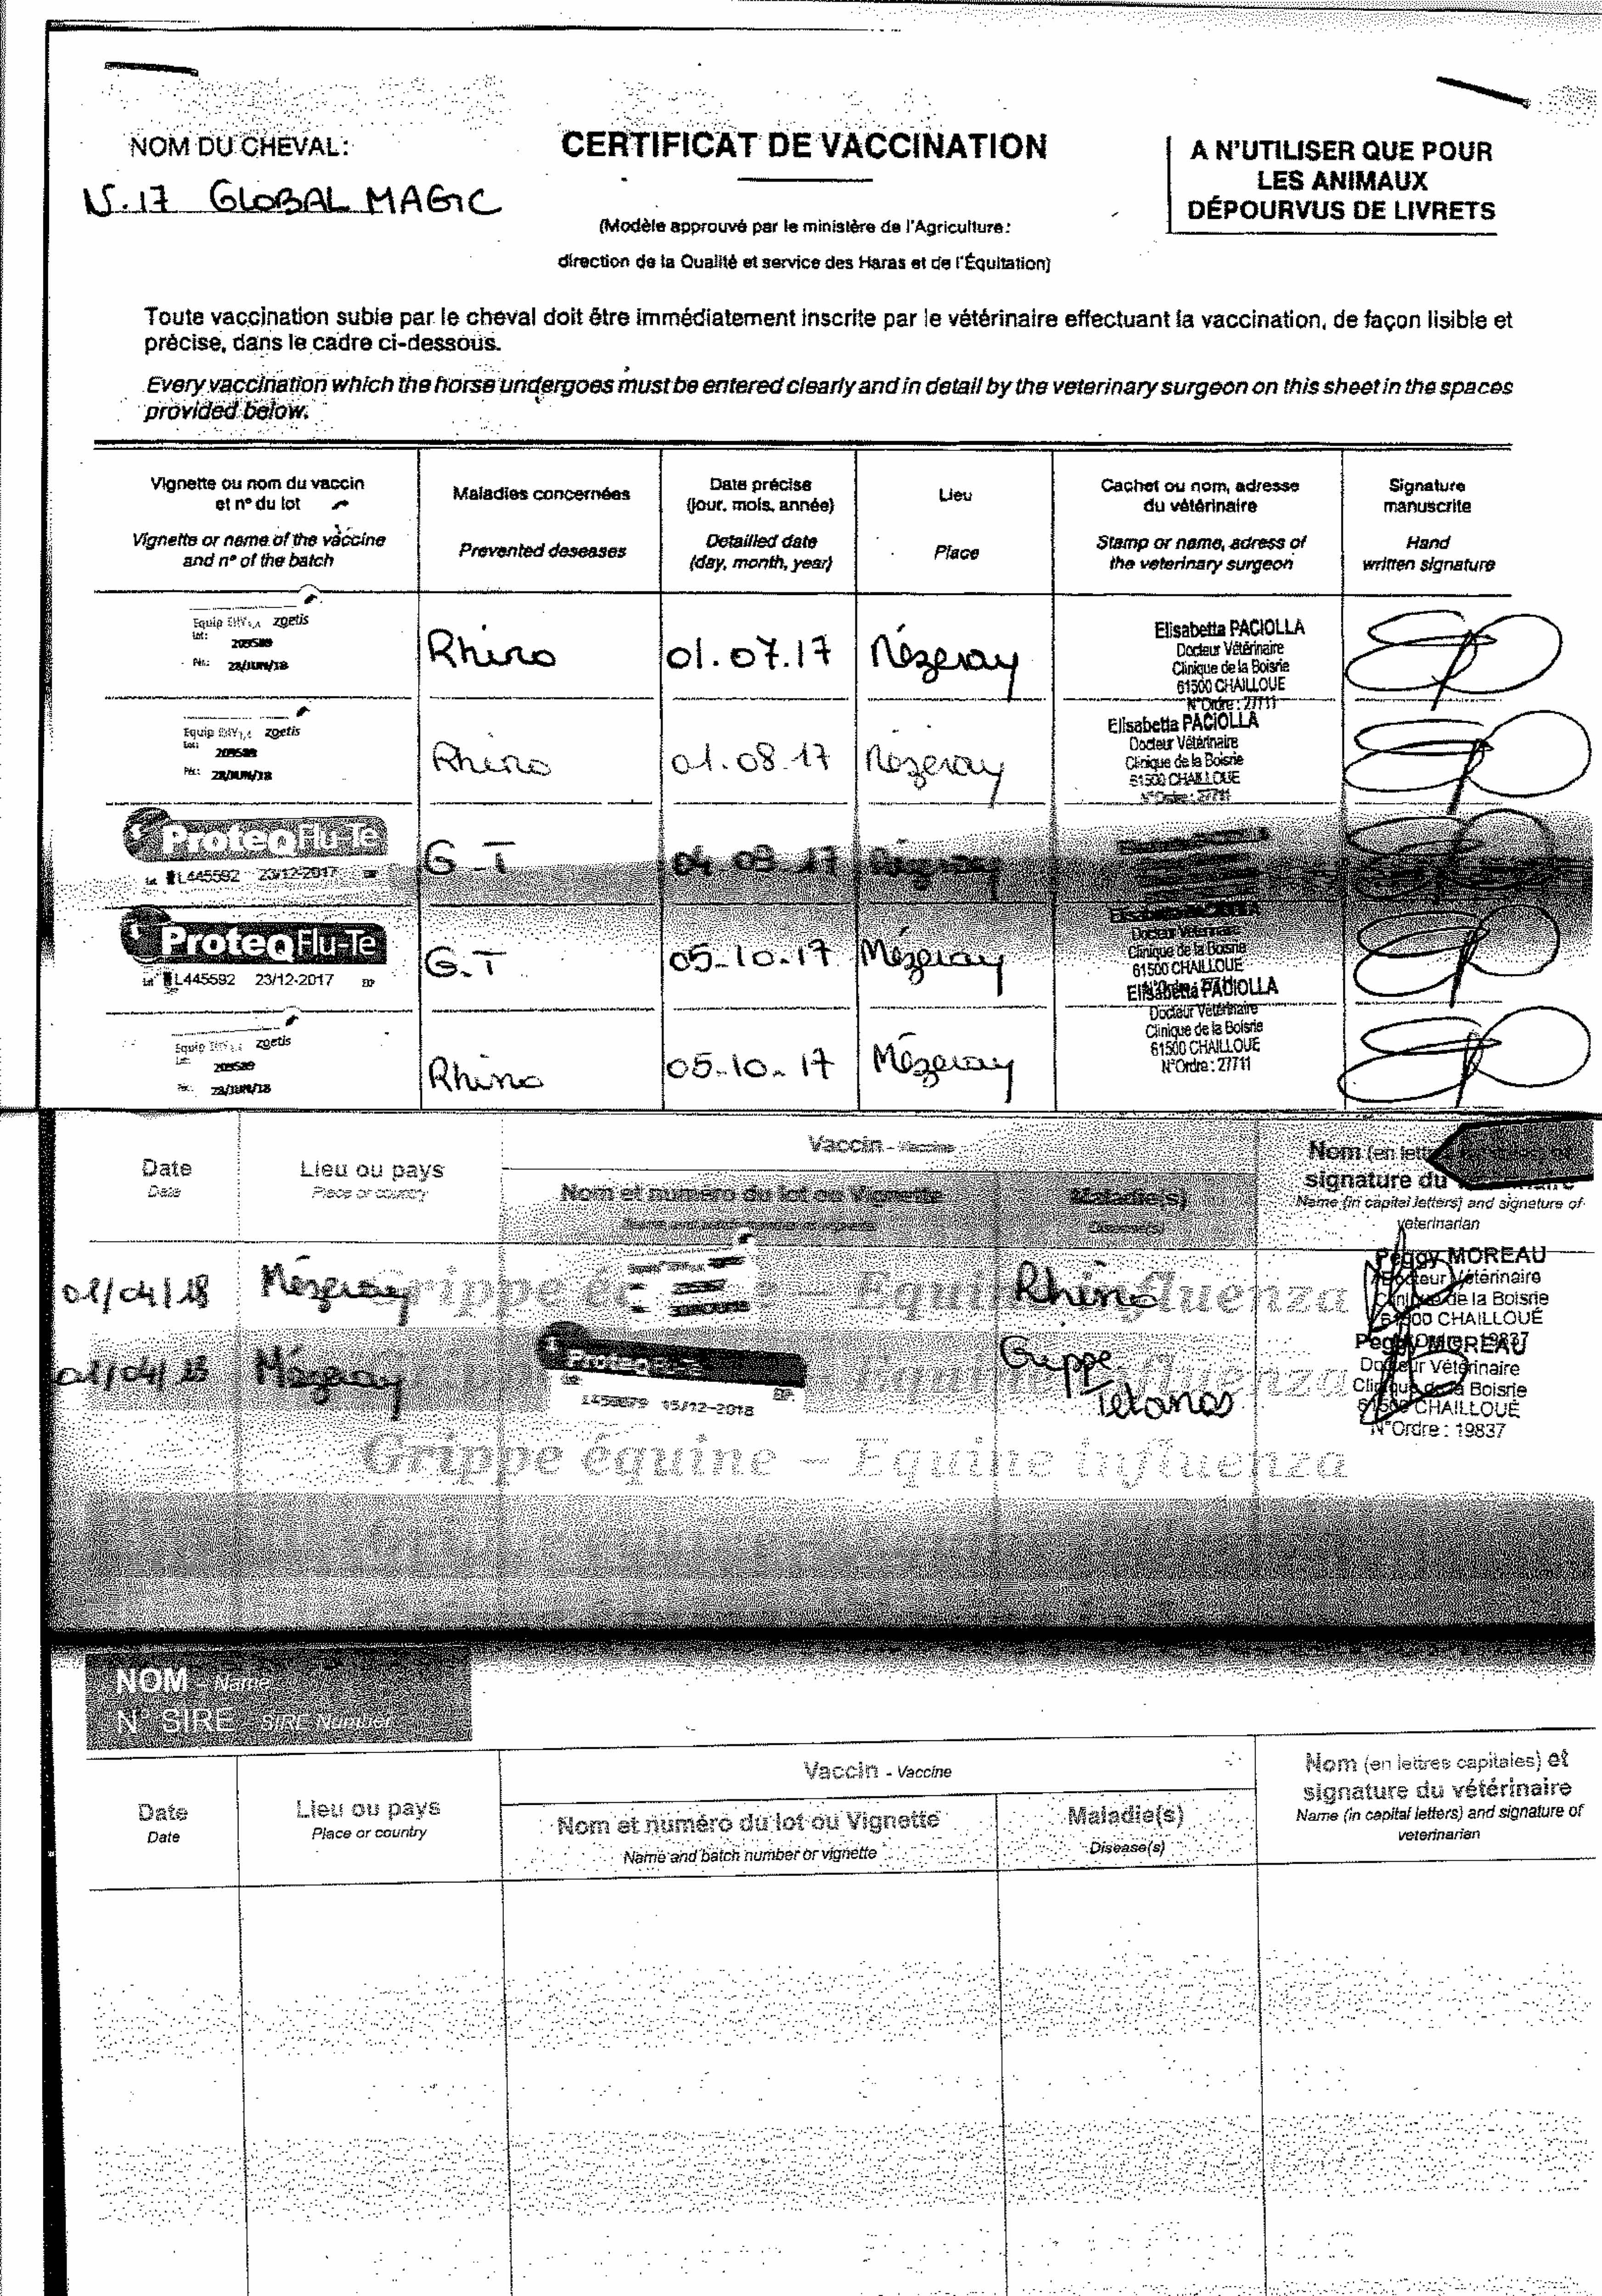 NOM DU CHEVAL:
N.17 GLOBAL MAGIC
CERTIFICAT DE VACCINATION
(Modèle approuvé par le ministère de l'Agriculture:
direction de la Qualité et service des Haras et de l'Équitation)
A N'UTILISER QUE POUR
LES ANIMAUX
DÉPOURVUS DE LIVRETS
Toute vaccination subie par le cheval doit être immédiatement inscrite par le vétérinaire effectuant la vaccination, de façon lisible et
précise, dans le cadre ci-dessous.
Every vaccination which the horse undergoes must be entered clearly and in detail by the veterinary surgeon on this sheet in the spaces
provided below.
Vignette ou nom du vaccin
et n° du lot
Vignette or name of the vaccine
and n° of the batch
Maladies concernées
Prevented deseases
Date précise
(jour, mois, année)
Detailled date
(day, month, year)
Lieu
Place
Cachet ou nom, adresse
du vétérinaire
Stamp or name, adress of
the veterinary surgeon
Signature
manuscrite
Hand
written signature
Equip EHV1,4 zoetis
Lot:
209589
Pér.: 28/JUN/18
Rhino
01.07.17
Mézeray
Elisabetta PACIOLLA
Docteur Vétérinaire
Clinique de la Boisrie
61500 CHAILLOUE
N°Ordre : 27711
Equip EHV1,4 zoetis
Lot:
209589
Pér.: 28/JUN/18
Rhino
01.08.17
Mézeray
Elisabetta PACIOLLA
Docteur Vétérinaire
Clinique de la Boisrie
61500 CHAILLOUE
N°Ordre : 27711
ProteqFlu-Te
Lot L445592 23/12-2017 EXP
G.T
17
Mézeray
ProteqFlu-Te
Lot L445592 23/12-2017 EXP
G.T
05.10.17
Mézeray
Elisabetta PACIOLLA
Docteur Vétérinaire
Clinique de la Boisrie
61500 CHAILLOUE
Equip EHV1,4 zoetis
Lot:
209589
Pér.: 28/JUN/18
Rhino
05.10.17
Mézeray
Elisabetta PACIOLLA
Docteur Vétérinaire
Clinique de la Boisrie
61500 CHAILLOUE
N°Ordre : 27711
Date
Date
Lieu ou pays
Place or country
Vaccin - Vaccine
Nom et numéro du lot ou Vignette
Name and batch number or vignette
Maladie(s)
Disease(s)
Nom (en lett
signature du
Name (in capital letters) and signature of
veterinarian
/04/18
Mézeray
Rhino
Peggy MOREAU
Docteur Vétérinaire
Clinique de la Boisrie
61500 CHAILLOUÉ
Grippe équine – Equine influenza
Mézeray
Proteq
15/12-2018
EXP
Grippe
Tetanos
Peggy MOREAU
Docteur Vétérinaire
Clinique de la Boisrie
61500 CHAILLOUÉ
N°Ordre : 19837
Grippe équine – Equine influenza
NOM - Name
N° SIRE - SIRE Number
Date
Date
Lieu ou pays
Place or country
Vaccin - Vaccine
Nom et numéro du lot ou Vignette
Name and batch number or vignette
Maladie(s)
Disease(s)
Nom (en lettres capitales) et
signature du vétérinaire
Name (in capital letters) and signature of
veterinarian